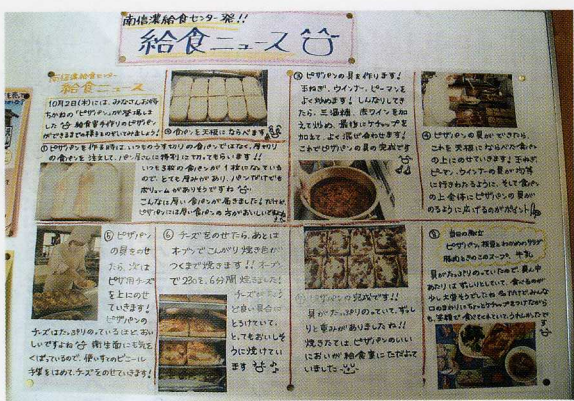 南信濃給食センター発!!
給食ニュース
南信濃給食センター
給食ニュース
10月2日(木)には、みなさんお待
ちかねの「ピザパン」が登場しま
した
給食室手作りのピザパン
ができるまでの様子をのぞいてみましょう!
① ピザパンを作る時は、いつものうす切りの食パンではなく、厚切り
の食パンを注文して、パン屋さんに特別に切ってもらいます!!
いつも3枚の食パンが1枚になっている
ので、とても厚みがあり、パンだけでも
ボリュームがありそうですね
こんなに厚い食パンが届きました!
ピザパンには厚い食パンの方がおいしい
② 食パンを天板にならべます
③ ピザパンの具を作ります!
玉ねぎ、ウインナー、ピーマンを
よく炒めます! しんなりしてき
たら、三温糖、赤ワインを加
えて炒め、最後にケチャップを
加えて、よく混ぜ合わせます!
これでピザパンの具の完成です
④ ピザパンの具ができたら、
これを天板にならべた食パン
の上にのせていきます! 玉ねぎ、
ピーマン、ウインナーの具が均等
に行きわたるように、そして食パン
の上全体にピザパンの具が
のるように広げるのがポイント
⑤ ピザパン
の具をのせ
たら、次は
ピザ用チーズ
を上にのせ
ていきます!
ピザパンの
チーズはたっぷりのっているほど、おい
しいですよね 衛生面にも気を
くばっているので、使いすてのビニール
手袋をはめて、チーズをのせていきます!
⑥ チーズをのせたら、あとは
オーブンでこんがり焼き色が
つくまで焼きます!! オーブン
で230℃、6分間焼きました!
チーズがちょう
ど良い具合に
とろけていて、
とってもおいしそ
うに焼けてい
ます
ピザパンの完成です!!
具がたっぷりのっていて、ずっし
りと重みがありましたね!!
焼きたては、ピザパンのいい
においが給食室にただよっ
ていました
当日の献立
ピザパン、枝豆とわかめのサラダ
豚肉ときのこのスープ、牛乳
具がたっぷりのっていたので、